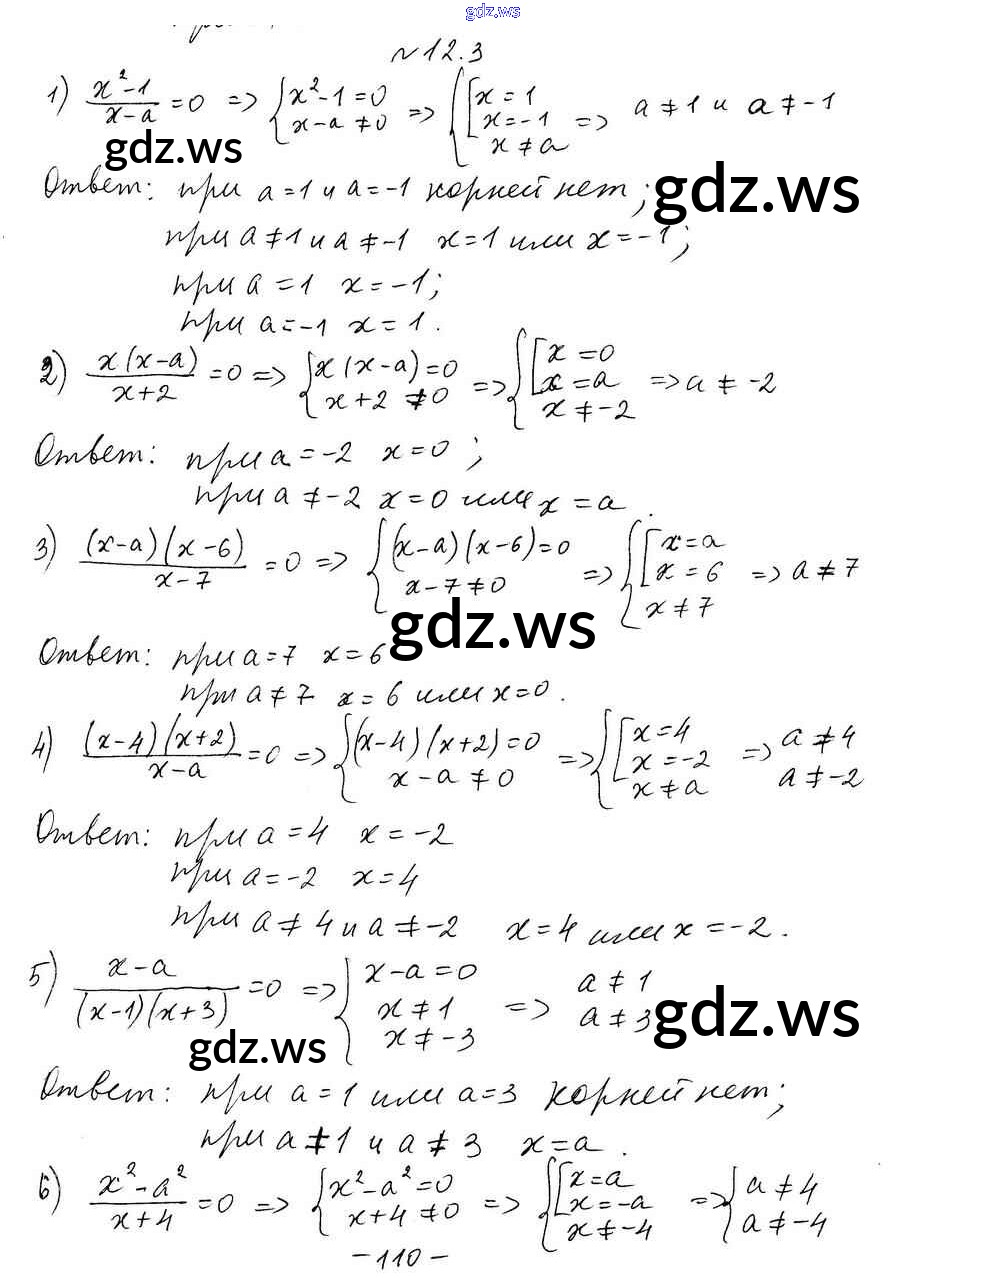 gdz.ws
№12.3
1) (x²-1)/(x-a) =0 => { x²-1=0; x-a≠0 => { [ x=1; x=-1; x≠a => a≠1 и a≠-1
gdz.ws
Ответ: при a=1 и a=-1 корней нет;
gdz.ws
при a≠1 и a≠-1 x=1 или x=-1;
при a=1 x=-1;
при a=-1 x=1.
2) x(x-a)/(x+2) =0 => { x(x-a)=0; x+2≠0 => { [ x=0; x=a; x≠-2 => a≠-2
Ответ: при a=-2 x=0;
при a≠-2 x=0 или x=a.
3) (x-a)(x-6)/(x-7) =0 => { (x-a)(x-6)=0; x-7≠0 => { [ x=a; x=6; x≠7 => a≠7
gdz.ws
Ответ: при a=7 x=6
при a≠7 x=6 или x=0.
4) (x-4)(x+2)/(x-a) =0 => { (x-4)(x+2)=0; x-a≠0 => { [ x=4; x=-2; x≠a => a≠4 a≠-2
Ответ: при a=4 x=-2
при a=-2 x=4
при a≠4 и a≠-2 x=4 или x=-2.
5) (x-a)/((x-1)(x+3)) =0 => { x-a=0; x≠1; x≠-3 => a≠1 a≠3
gdz.ws
gdz.ws
Ответ: при a=1 или a=3 корней нет;
при a≠1 и a≠3 x=a.
6) (x²-a²)/(x+4) =0 => { x²-a²=0; x+4≠0 => { [ x=a; x=-a; x≠-4 => { a≠4; a≠-4
-110-